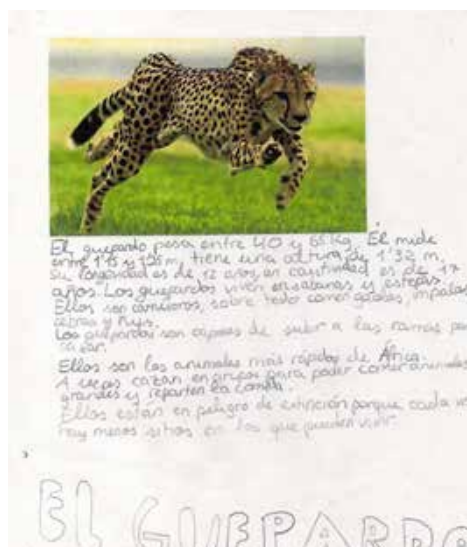 El guepardo pesa entre 40 y 65 Kg. Él mide
entre 1'15 y 1'25 m, tiene una altura de 1'32 m.
Su longevidad es de 12 años, en cautividad es de 17
años. Los guepardos viven en sabanas y estepas.
Ellos son carnívoros, sobre todo comen gacelas, impalas,
cebras y ñus.
Los guepardos son capaces de subir a las ramas para
cazar.
Ellos son los animales más rápidos de África.
A veces cazan en grupos para poder comer animales
grandes y reparten la comida.
Ellos estan en peligro de extinción porque cada vez
hay menos sitios en los que pueden vivir.
EL GUEPARDO